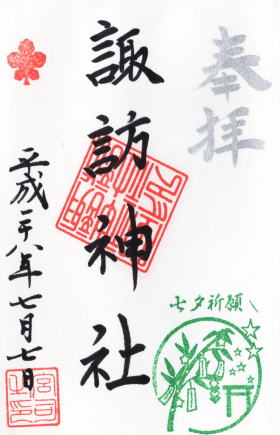 奉拝
諏訪神社
平成二十八年七月七日
七夕祈願